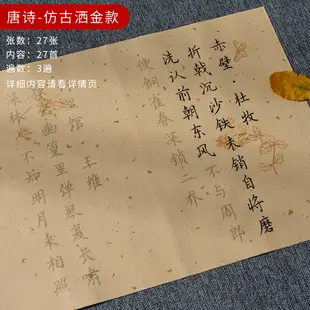 唐诗-仿古洒金款
张数:27张
内容:27首
遍数:3遍
详细内容请看详情页
赤壁 杜牧
折戟沉沙铁未销自将磨
洗认前朝东风不与周郎
便铜雀春深锁二乔
里馆 王维
幽篁里弹琴复长啸
深林人不知明月来相照